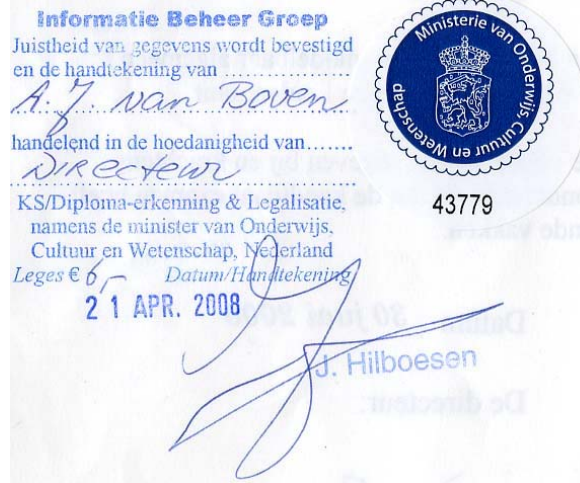 Informatie Beheer Groep
Juistheid van gegevens wordt bevestigd
en de handtekening van
A. J. van Boven
handelend in de hoedanigheid van.......
Directeur
KS/Diploma-erkenning & Legalisatie,
namens de minister van Onderwijs,
Cultuur en Wetenschap, Nederland
Leges € 6,- Datum/Handtekening
21 APR. 2008
J. Hilboesen
Ministerie van Onderwijs, Cultuur en Wetenschap
43779
Datum 30 juni
De directeur: